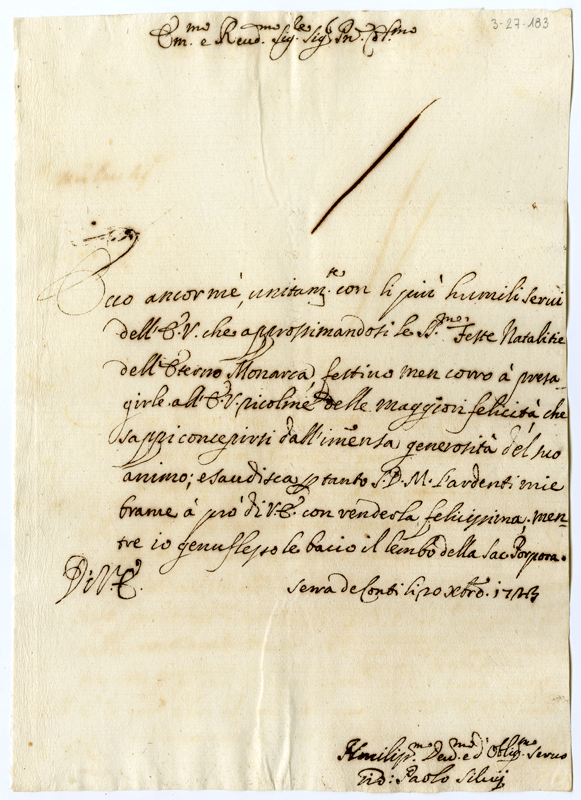 3-27-183
Em.mo e Reud.mo Sig.re Sig.r Pn. Col.mo
Ecco ancor mè, unitam.te con li più humili serui
dell'E.V. che approssimandosi le SS.me Feste Natalitie
dell'Eterno Monarca, festiuo men corro à presa-
girle all'E.V. ricolme delle maggiori felicità, che
sappi concepirsi dall'imensa generosità del suo
animo; esaudisca p tanto S.D.M. l'ardenti mie
brame à prò di V.E. con renderla felicissima, men-
tre io genuflesso le bacio il lembo della Sac. Porpora.
Di V.E.
Serra de Conti li 20 Xbre. 1723
Humiliss.mo Deu.mo ed Oblig.mo Seruo
Paolo Siluij